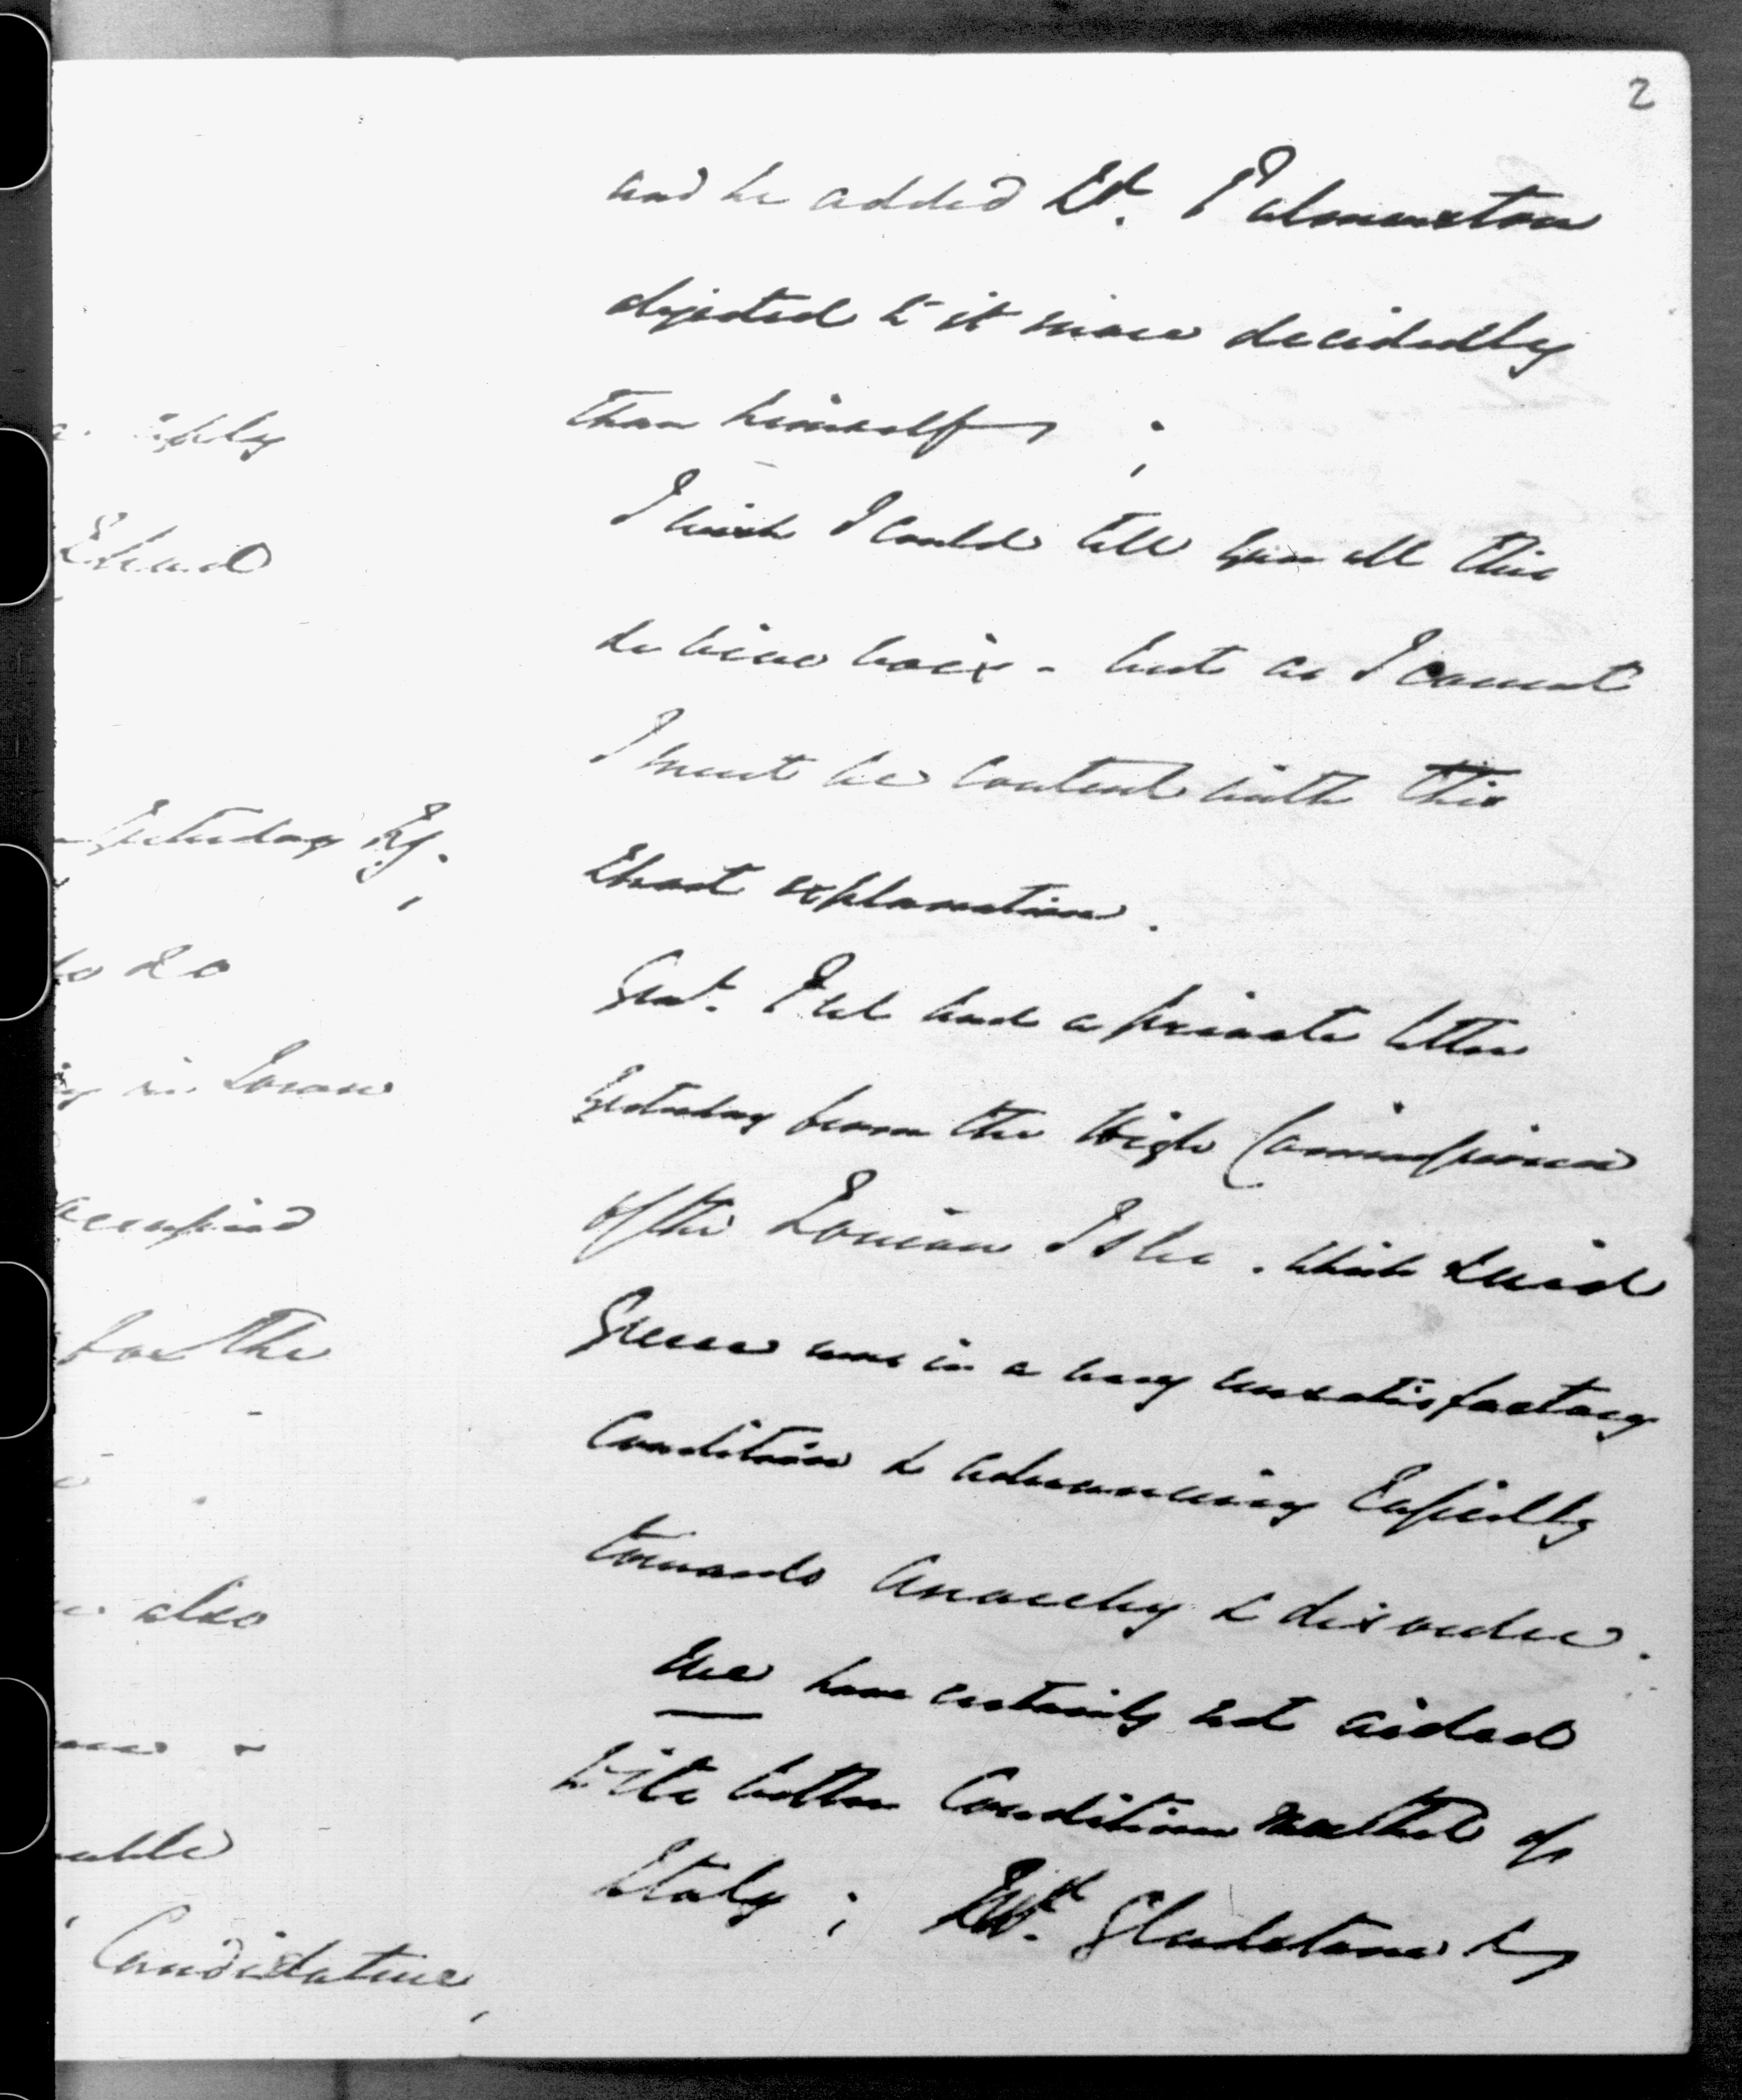 2
and he added Ld. Palmerston
objected to it more decidedly
than himself ;
I wish I could tell you all this
de vive voix - but as I cannot
I must be content with this
Short explanation.
Genl. Peel had a private letter
yesterday from the High Commissioner
of the Ionian Isles . which said
Greece was in a very unsatisfactory
Condition & advancing Rapidly
towards Anarchy & disorder.
We have certainly not aided
to its better Condition neither of
Italy ; Gladstone
reply
Yesterday
to do
in
occupied
for the
also
Candidature,